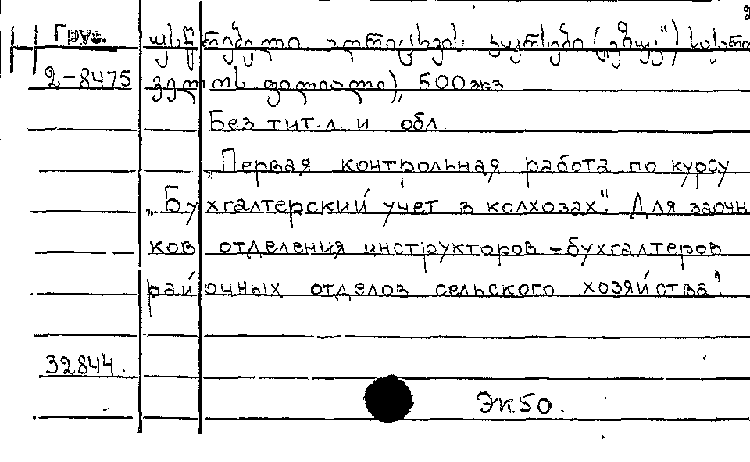 Груз.
2-8475 500 экз
Без тит. л. и обл.
„Первая контрольная работа по курсу
„Бухгалтерский учет в колхозах". Для заочн
ков отделения инструкторов-бухгалтеров
районных отделов сельского хозяйства"
32844.
Эк50.